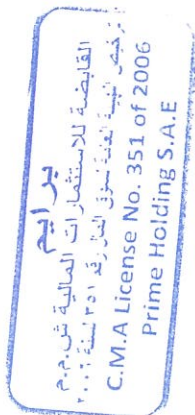 برايم
القابضة للاستثمارات المالية ش.م.م
ترخيص هيئة العامة لسوق المال رقم ٣٥١ لسنة ٢٠٠٦
C.M.A License No. 351 of 2006
Prime Holding S.A.E